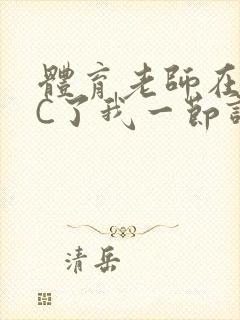 體育老師在
C了我一節
清岳